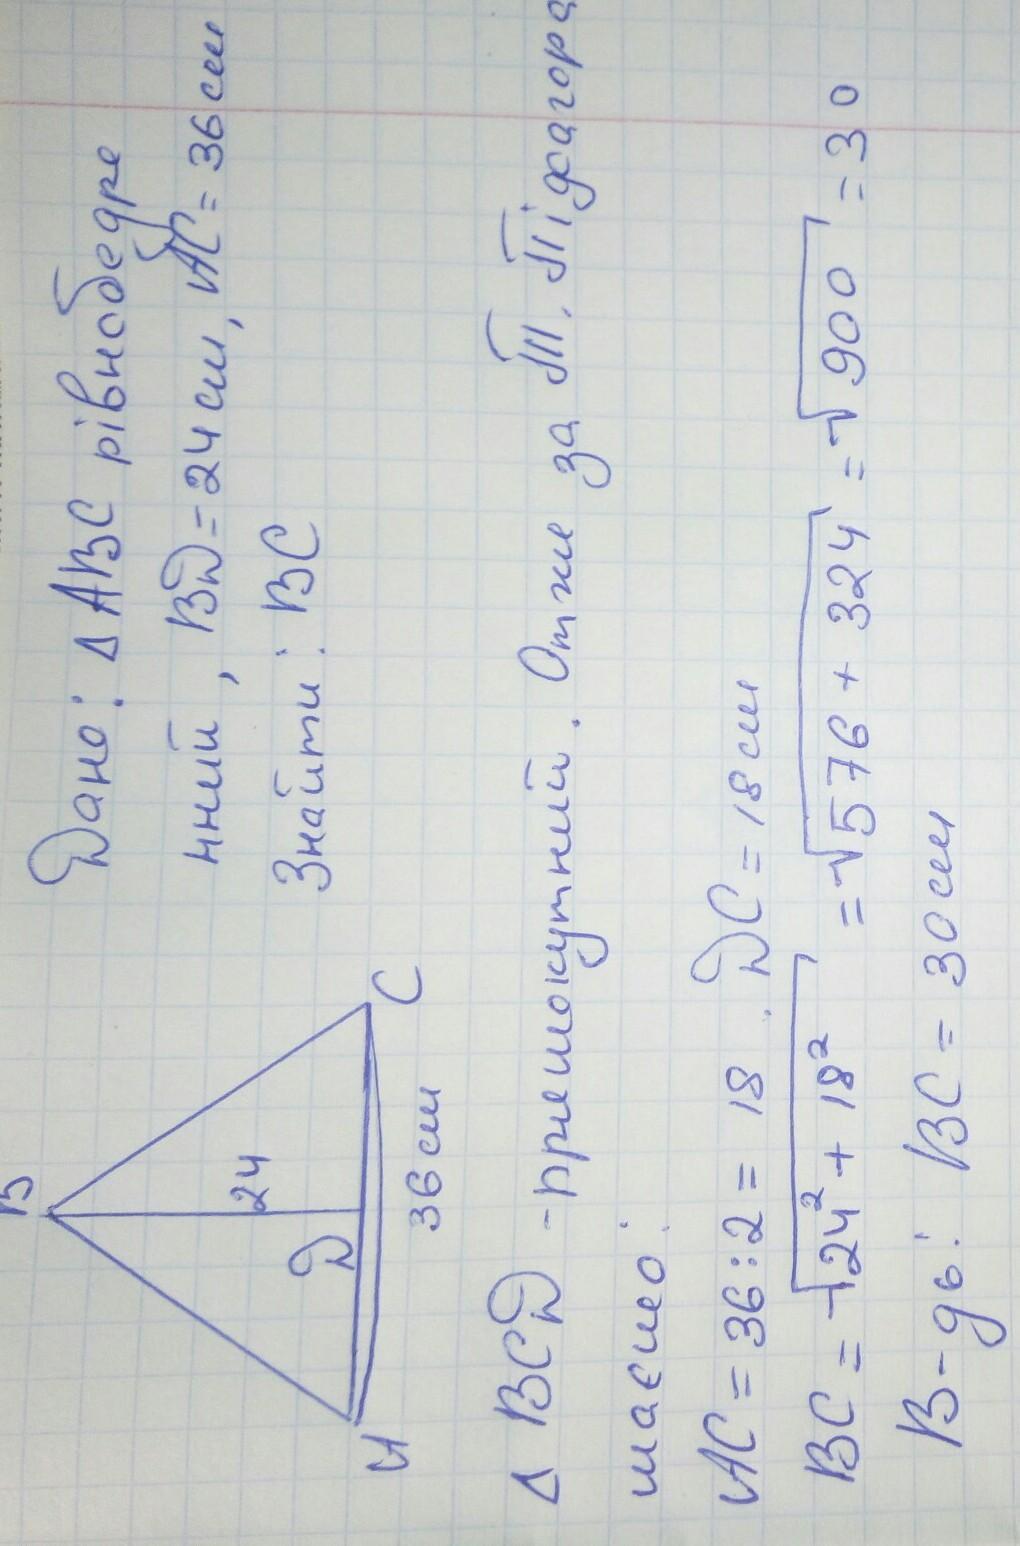 Дано: Δ ABC рівнобедре
нний, BД=24см, AC=36см
Знайти: BC
B
24
Д
A
C
36см
Δ BCД -прямокутний. Отже за т. Піфагора
маємо:
AC = 36:2 = 18. ДC=18см
BC = √24²+18² = √576+324 = √900 = 30
В-дь: BC = 30см